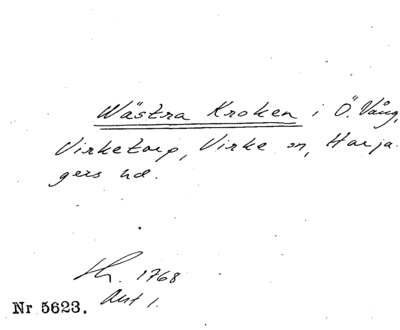 Wästra Kroken i Ö. Vång,
Virketorp, Virke sn, Harja-
gers hd.
1768
Akt 1.
Nr 5623.